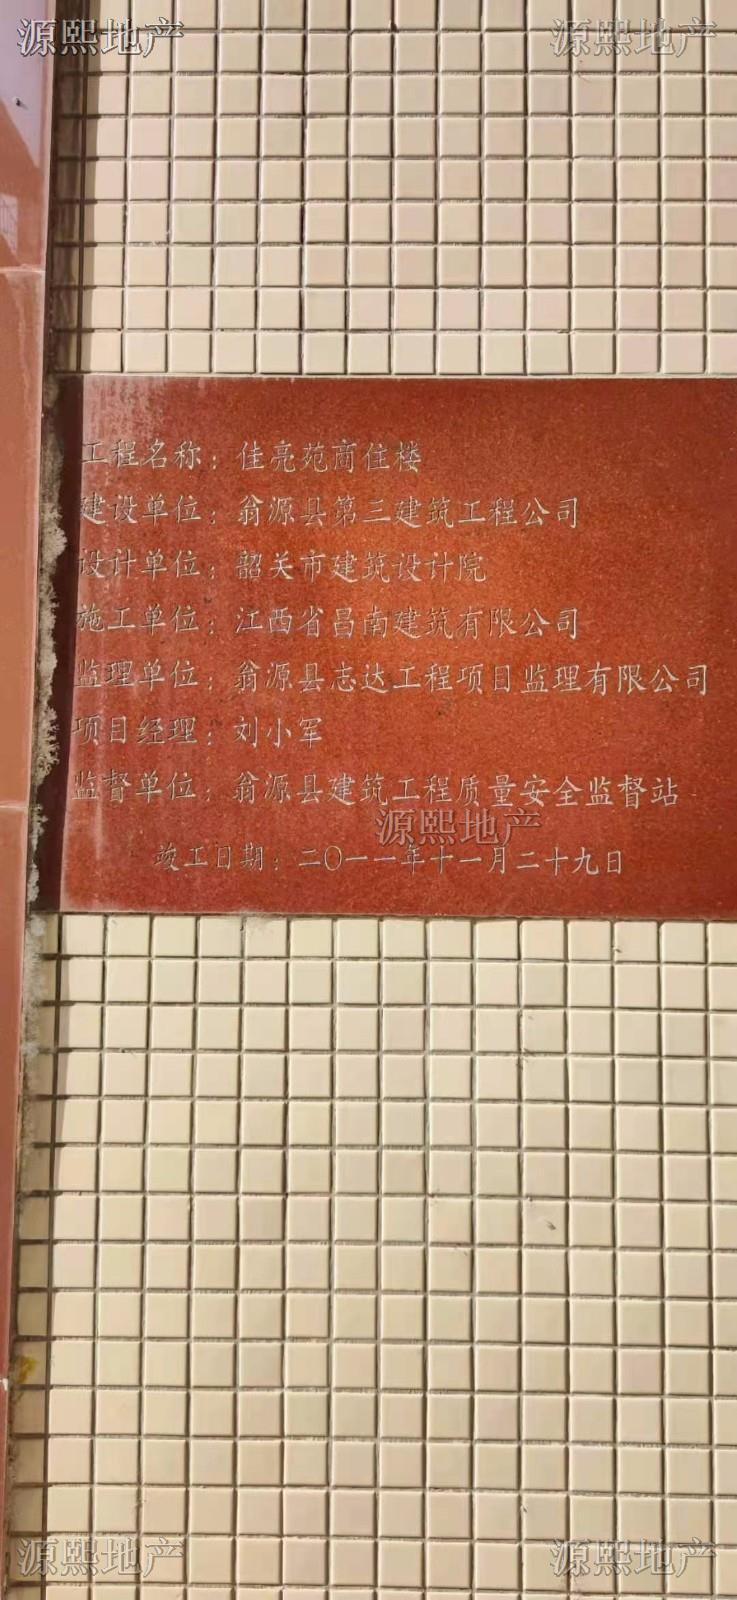 源熙地产 源熙地产
工程名称：佳亮苑商住楼
建设单位：翁源县第三建筑工程公司
设计单位：韶关市建筑设计院
施工单位：江西省昌南建筑有限公司
监理单位：翁源县志达工程项目监理有限公司
项目经理：刘小军
监督单位：翁源县建筑工程质量安全监督站
源熙地产
竣工日期：二〇一一年十一月二十九日
源熙地产 源熙地产